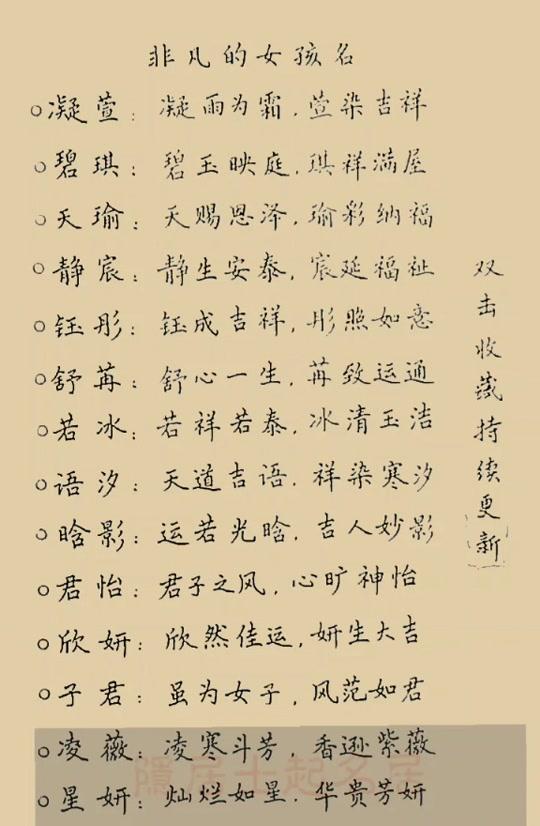 非凡的女孩名
凝萱：凝雨为霜，萱染吉祥
碧琪：碧玉映庭，琪祥满屋
天瑜：天赐恩泽，瑜彩纳福
静宸：静生安泰，宸延福祉
钰彤：钰成吉祥，彤照如意
舒苒：舒心一生，苒致运通
若冰：若祥若泰，冰清玉洁
语汐：天道吉语，祥染寒汐
晗影：运若光晗，吉人妙影
君怡：君子之风，心旷神怡
欣妍：欣然佳运，妍生大吉
子君：虽为女子，风范如君
凌薇：凌寒斗芳，香逊紫薇
星妍：灿烂如星，华贵芳妍
双击收藏持续更新
隐居士起名居